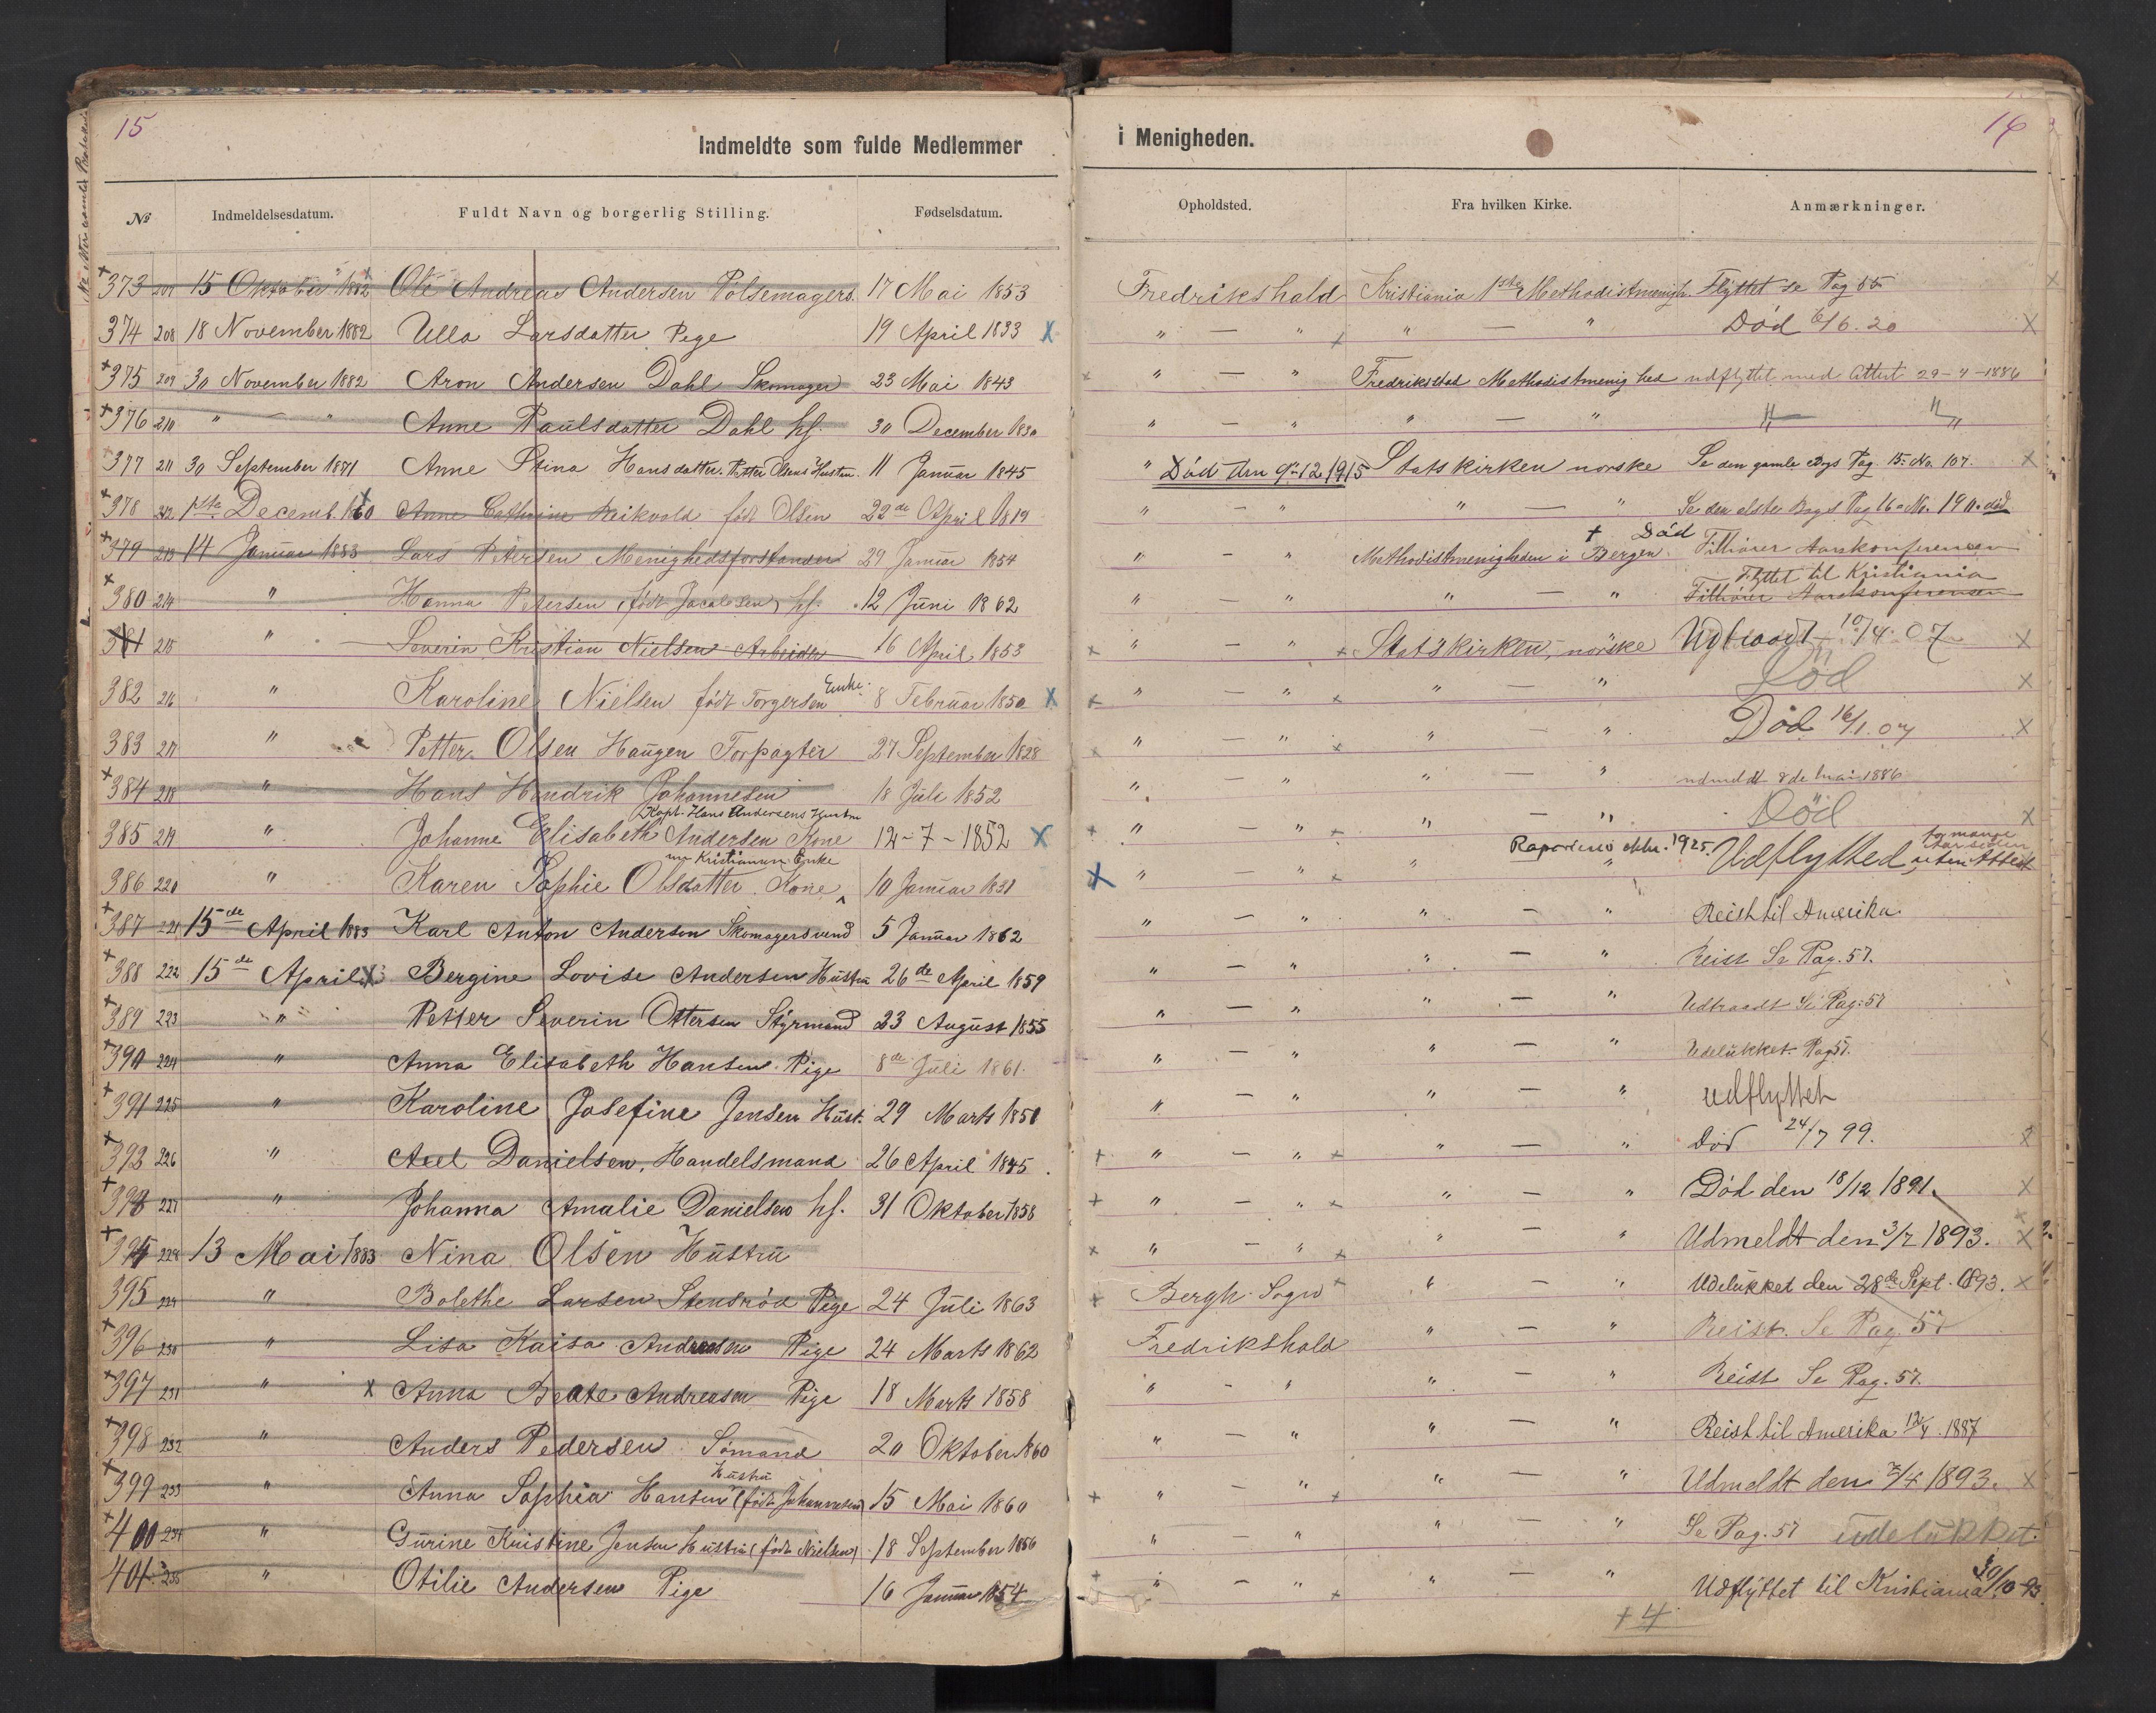 15
16
Indmeldte som fulde Medlemmer i Menigheden.
No Indmeldelsesdatum. Fuldt Navn og borgerlig Stilling. Fødselsdatum. Opholdsted. Fra hvilken Kirke. Anmærkninger.
373 207 15 Oktober 1882 Ole Andreas Andersen Pølsemagers. 17 Mai 1853 Fredrikshald Kristiania 1ste Methodistmenigh. Flyttet se Pag 85
374 208 18 November 1882 Ulla Larsdatter Pege 19 April 1833 " — " " — " Död 6/6.20
375 209 30 November 1882 Aron Andersen Dahl Skomager 23 Mai 1843 " — " Fredrikstad Methodistmenighed udflyttet med Attest 29-4-1886
376 210 " — " Anne Paulsdatter Dahl hf. 30 December 1830 " — " " — " " "
377 211 30 September 1871 Anne Stina Hansdatter. Petter Olsens Hustru. 11 Januar 1845 " Död den 9-12 1915 Statskirken norske Se den gamle Bogs Pag. 15. No. 107.
378 212 1ste Decemb. Anne Cathrine Reikvold født Olsen 22de April 1819 " — " " — " Se den elste Bogs Pag 16 No. 190. död
379 213 14 Januar 1883 Lars Petersen Menighedsforstander 29 Januar 1854 " — " Methodistmenigheden i Bergen. † Död Tilhører Aarskonferencen
380 214 " Hanna Petersen (født Jacobsen) hf. 12 Juni 1862 " — " " — " Flyttet til Kristiania Tilhører Aarskonferensen
381 215 " Severin Kristian Nielsen Arbeider 16 April 1853 " — " Statskirken, norske Udtraadt 10/4 07
382 216 " Karoline Nielsen født Torgersen Enke. 8 Februar 1850 " — " " — " Död
383 217 " Petter Olsen Haugen Forpagter 27 September 1828 " — " " — " Död 16/1.07
384 218 " Hans Hendrik Johannesen 18 Juli 1852 " — " " — " udmeldt 8de Mai 1886
385 219 " Johanne Elisabeth Andersen Kone Kapt. Hans Andersens Hustru 12-7-1852 " — " " — " Död
386 220 " Karen Sophie Olsdatter Kone, nu Kristiansen Enke 10 Januar 1831 " — " " " 1925. Udflyttet uten Attest for mange Aar siden
387 221 15de April 1883 Karl Anton Andersen Skomagersvend 5 Januar 1862 " — " " — " Reist til Amerika.
388 222 15de April Bergine Lovise Andersen Hustru 26de April 1859 " — " " — " Reist Se Pag. 57.
389 223 " Petter Severin Ottersen Styrmand 23 August 1855 " — " " — " Udtraadt Se Pag: 57
390 224 " Anna Elisabeth Hansen. Pige 8de Juli 1861. " — " " — " Udelukket. Pag 57.
391 225 " Karoline Josefine Jensen Hust. 29 Marts 1850 " — " " — " udflyttet
392 226 " Axel Danielsen, Handelsmand 26 April 1845. " — " " — " Död 24/7 99.
393 227 " Johanna Amalie Danielsen hf. 31 Oktober 1858 " — " " — " Död den 18/12 1891.
394 228 13 Mai 1883 Nina Olsen Hustru " — " " — " Udmeldt den 3/7 1893.
395 229 " Bolethe Larsen Stensröd Pige 24 Juli 1863 Bergh Sogn " — " Udelukket den 28de Sept. 1893.
396 230 " Lisa Kaisa Andreasen Pige 24 Marts 1862 Fredrikshald " — " Reist. Se Pag 57
397 231 " Anna Beate Andreasen Pige 18 Marts 1858 " — " " — " Reist Se Pag. 57.
398 232 " Anders Pedersen Sömand 20 Oktober 1860 " — " " — " Reist til Amerika 12/4. 1887
399 233 " Anna Sophia Hansen Hustru (født Johannesen) 15 Mai 1860 " — " " — " Udmeldt den 1893.
400 234 " Gurine Kristine Jensen Hustru (født Nielsen) 18 September 1856 " — " " — " Se Pag. 57 udelukket.
401 235 " Otilie Andersen Pige 16 Januar 1854 " — " " — " Udflyttet til Kristiania 30/10-93
+4